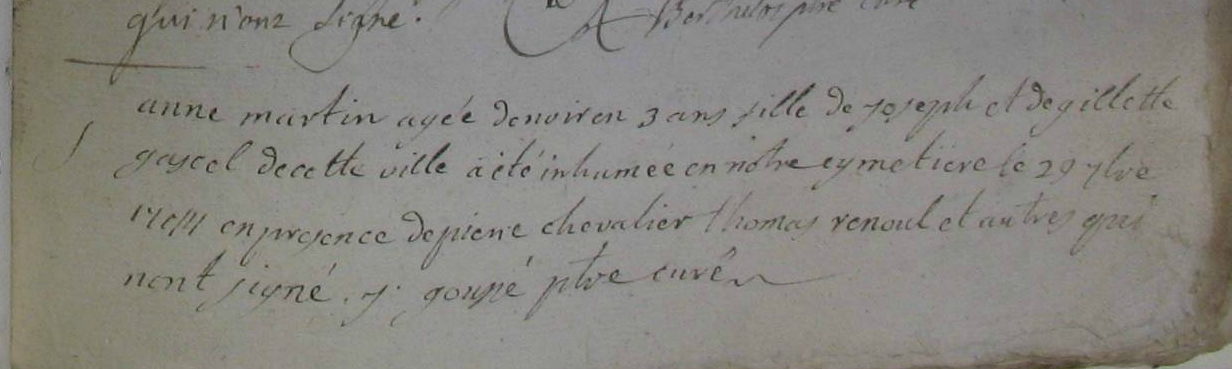 qui n'ont signé. Berthelot ptre curé
anne martin agée denviron 3 ans fille de joseph et de gillette
gascel de cette ville a été inhumée en nôtre cymetiere le 29 7bre
en presence de pierre chevalier thomas renoul et autres qui
nont signé. j. goupé ptre curé